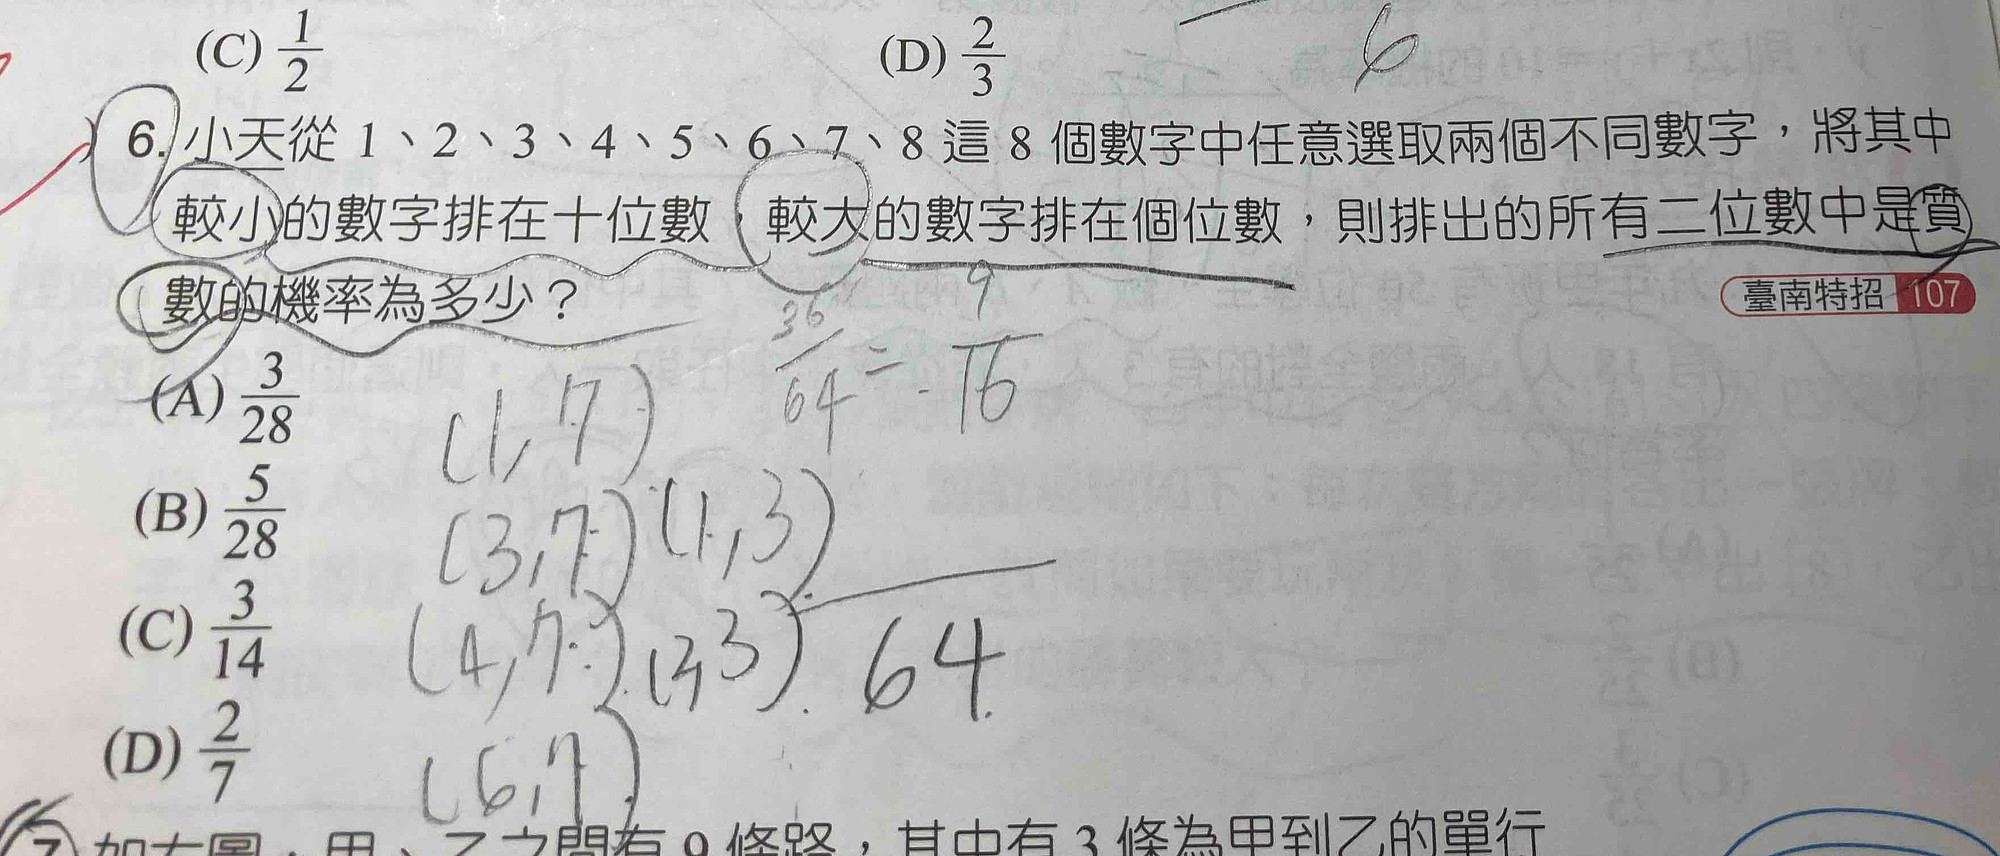 (C) 1/2 (D) 2/3 6
6. 小天從 1、2、3、4、5、6、7、8 這 8 個數字中任意選取兩個不同數字，將其中
較小的數字排在十位數，較大的數字排在個位數，則排出的所有二位數中是質
數的機率為多少？ 臺南特招 107
36/64 = 9/16
(A) 3/28 (1,7)
(B) 5/28 (3,7) (1,3)
(C) 3/14 (4,7) (2,3) 64
(D) 2/7 (6,7)
7 如右圖，甲、乙之間有 9 條路，其中有 3 條為甲到乙的單行